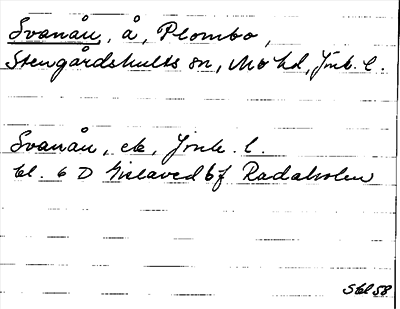 Svanån, å, Plombo,
Stengårdshults sn, Mo hd, Jönk. l.
Svanån, ek, Jönk. l.
bl. 6 D Gislaved 6f Radaholm
Stbl 58